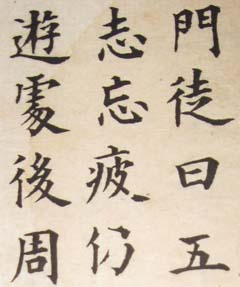 門徒曰五
志忘疲仍
遊處後周